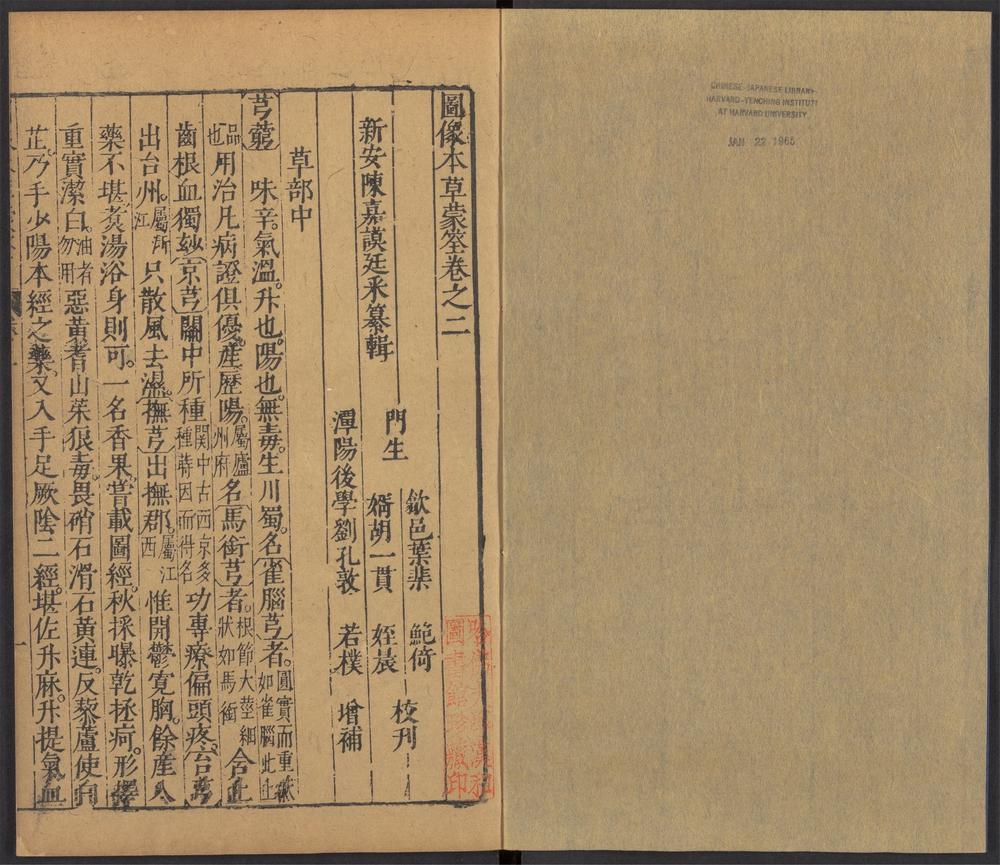 圖像本草蒙筌卷之二
新安陳嘉謨廷采纂輯
門生
歙邑葉棐
鮑倚
婿胡一貫
姪晨
校刊
潭陽後學劉孔敦
若樸
增補
草部中
芎藭 味辛。氣溫。升也。陽也。無毒。生川蜀。名雀腦芎者。圓實而重狀如雀腦此上
品也用治凡病證俱優。產歷陽。屬廬州府名馬銜芎者。根節大莖細狀如馬銜含止
齒根血獨妙。京芎關中所種関中古西京多種蒔因而得名功專療偏頭疼。台芎
出台州。屬浙江只散風去濕。撫芎出撫郡。屬江西惟開鬱寬胸。餘產入
藥不堪。煑湯浴身則可。一名香果。嘗載圖經。秋採曝乾拯疴。形擇
重實潔白。油者勿用惡黃耆山茱狼毒。畏硝石滑石黃連。反藜蘆使白
芷。乃手少陽本經之藥。又入手足厥陰二經。堪佐升麻。升提氣血
一
CHINESE-JAPANESE LIBRARY
HARVARD-YENCHING INSTITUTE
AT HARVARD UNIVERSITY
JAN 22 1965